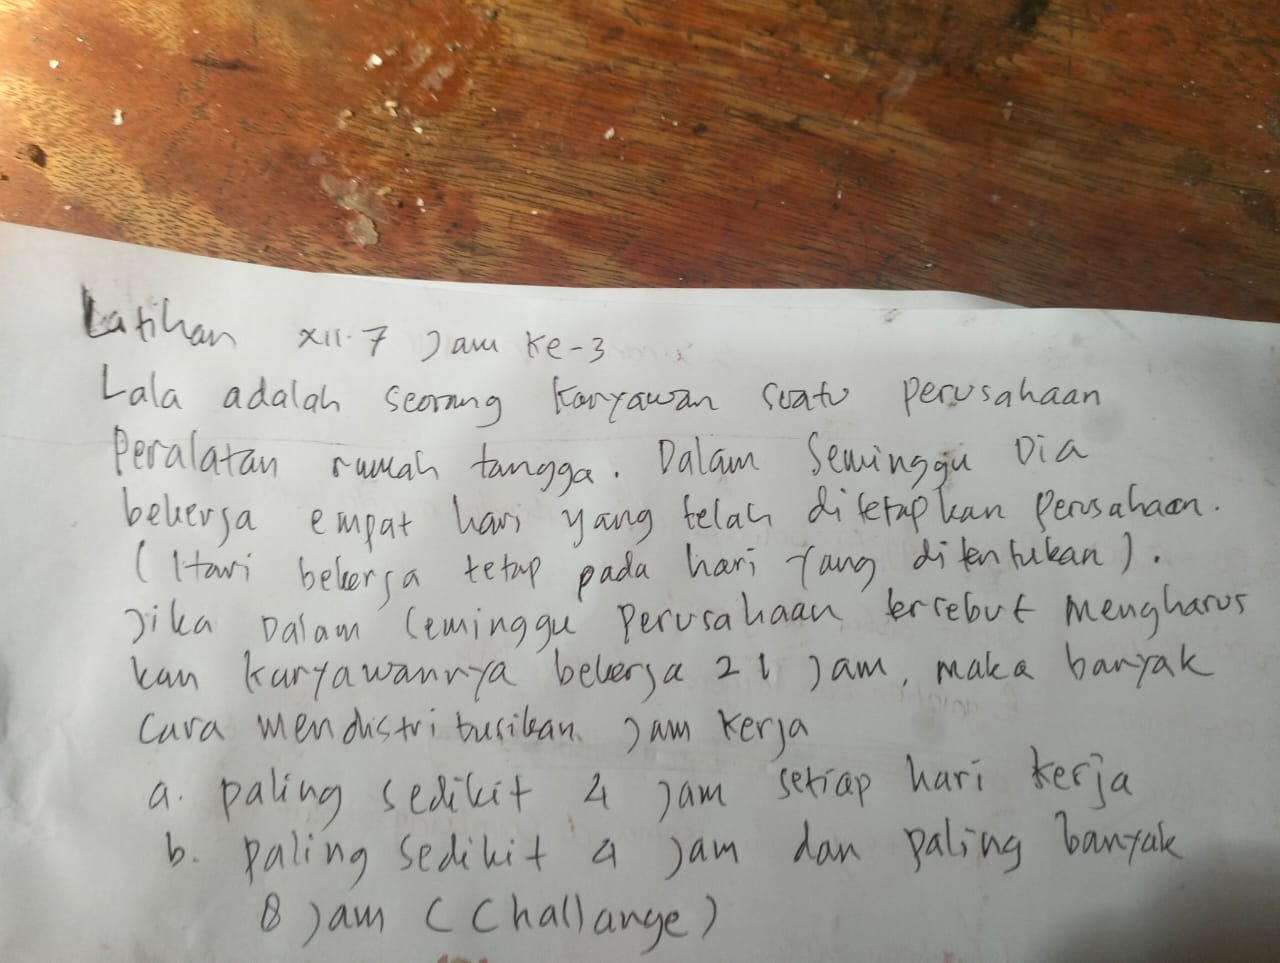 Latihan XII.7 Jam Ke-3
Lala adalah seorang Karyawan suatu perusahaan
Peralatan rumah tangga. Dalam Seminggu Dia
bekerja empat hari yang telah ditetapkan perusahaan.
(Hari bekerja tetap pada hari yang ditentukan).
Jika Dalam Seminggu Perusahaan tersebut mengharus
kan karyawannya bekerja 21 Jam, maka banyak
Cara mendistribusikan Jam Kerja
a. paling sedikit 4 Jam setiap hari kerja
b. paling sedikit 4 Jam dan paling banyak
8 Jam (Challange)